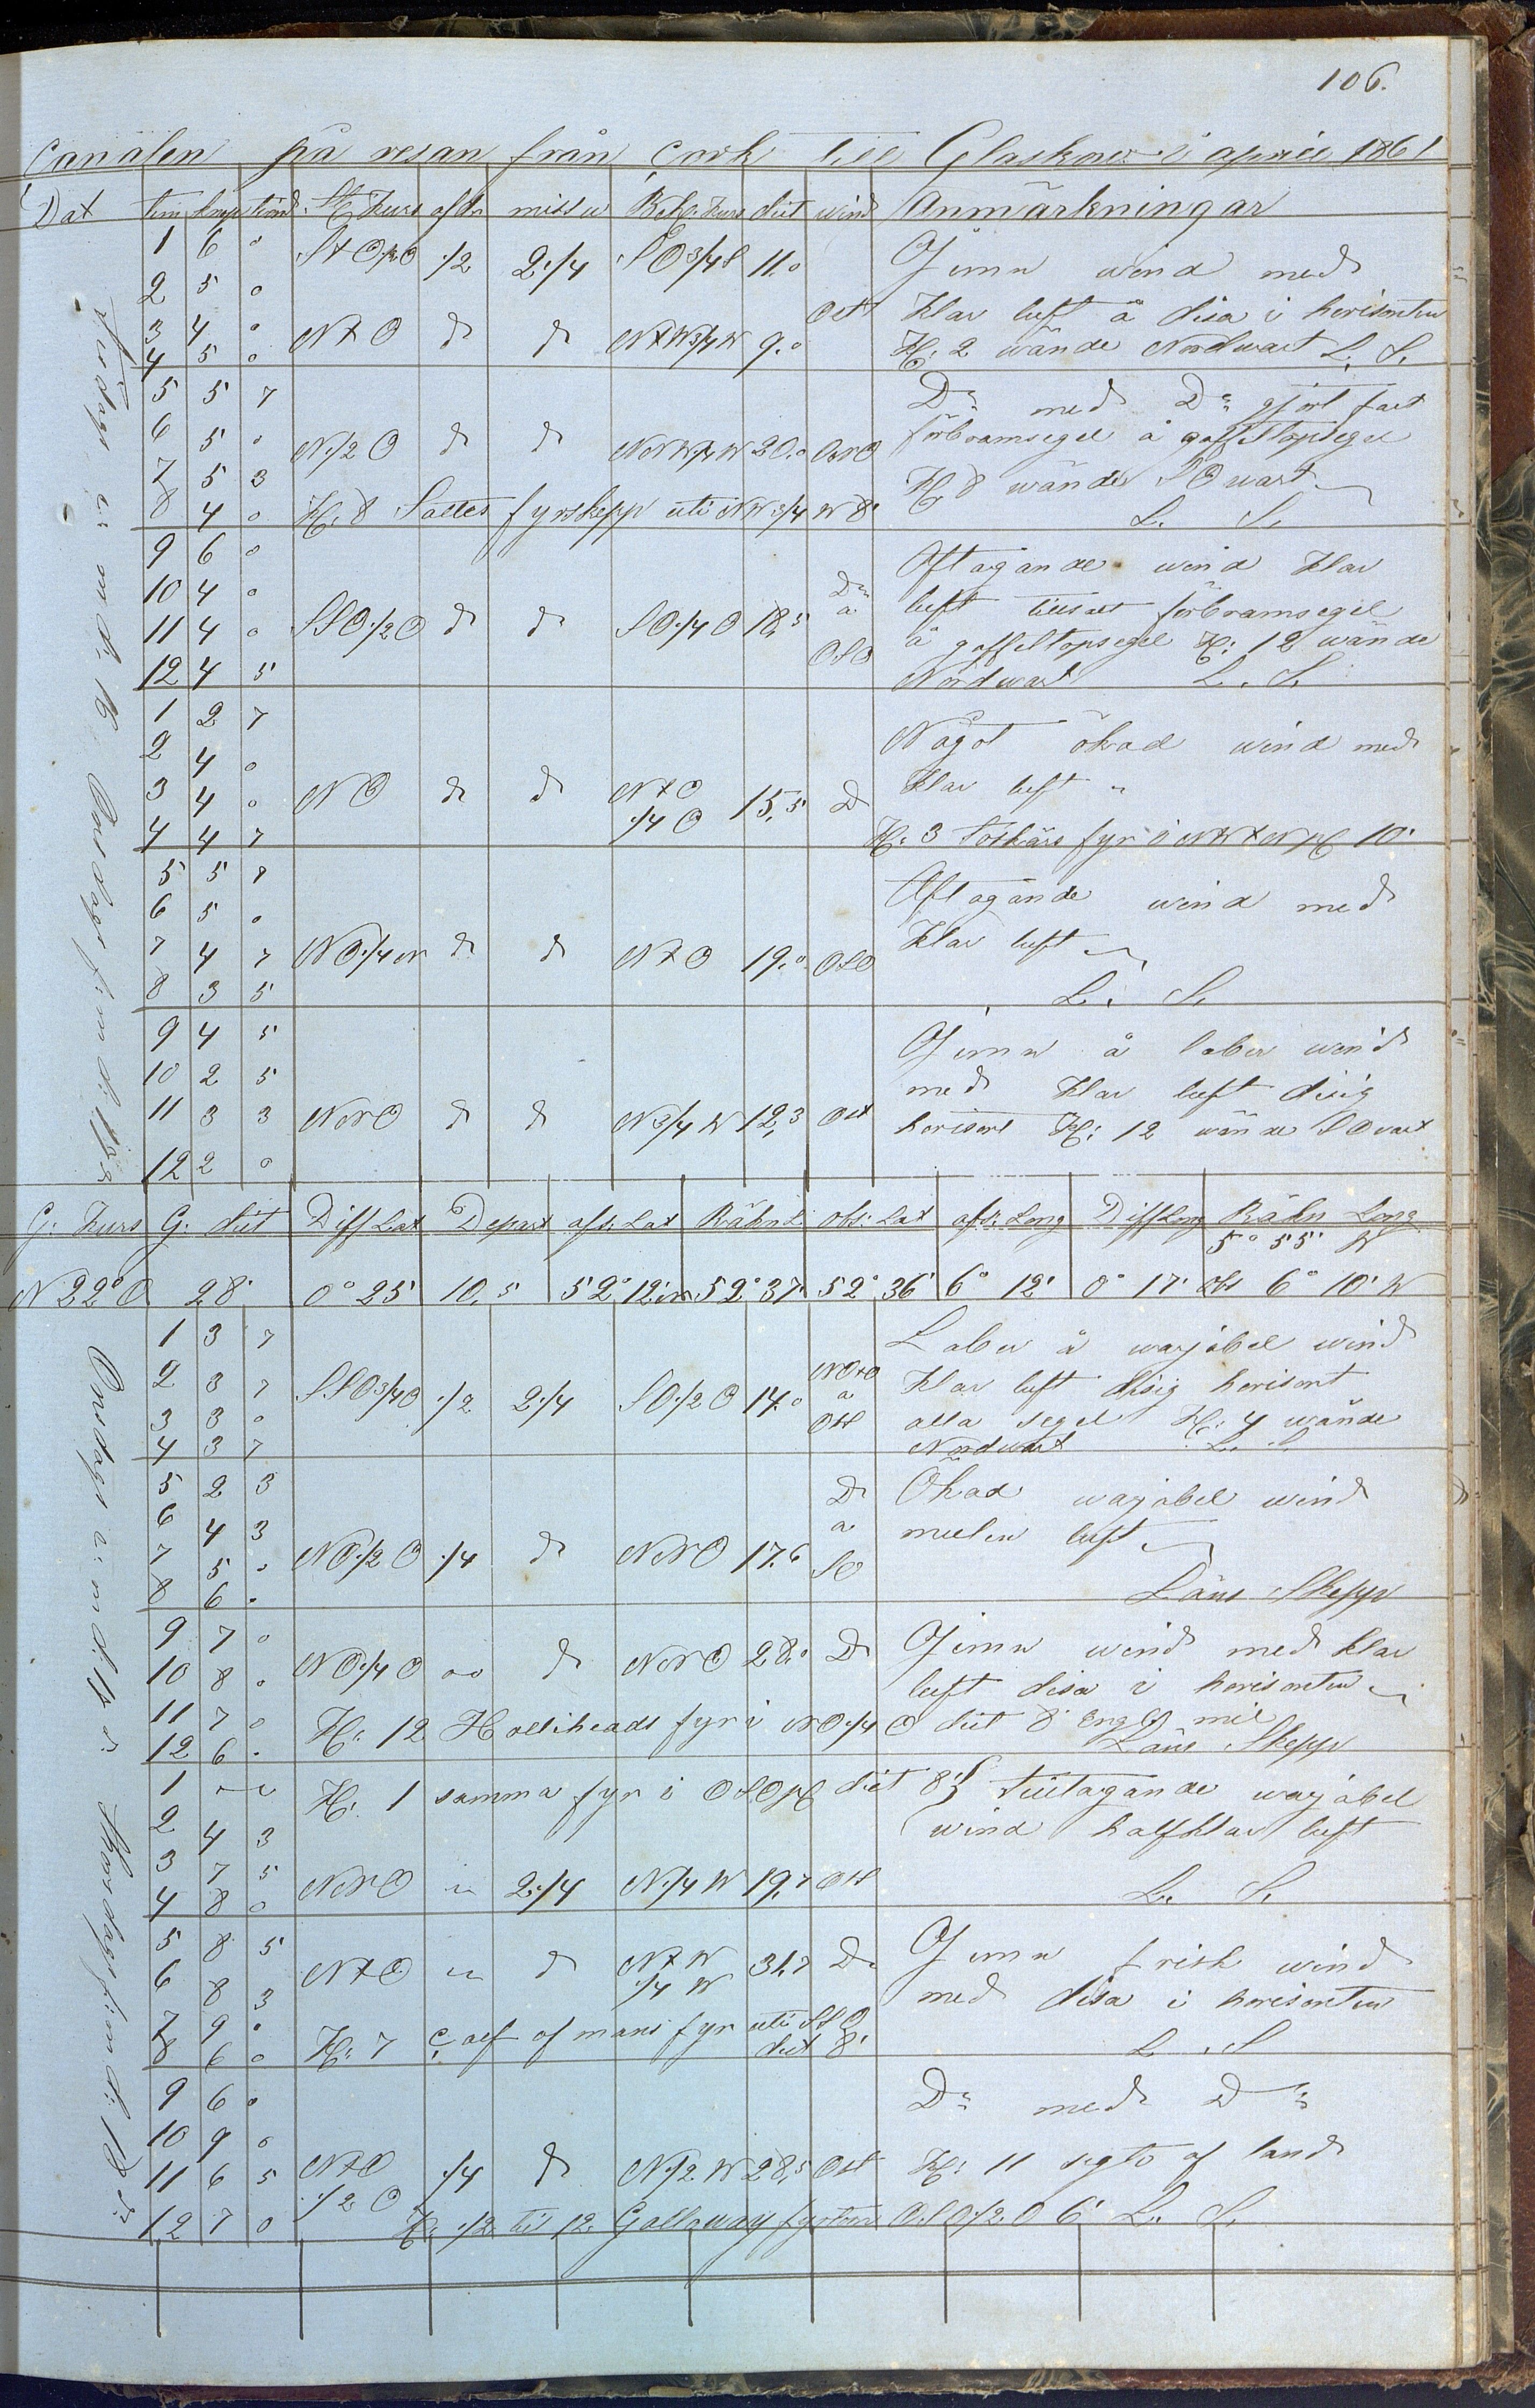 106.
Canalen på resan från Cork till Glaskow i april 1861
Dat tim knop tiond St: Kurs afdr missw Beh: Kurs dist wind Anmärkningar
Tisdags e: m d: 16. Onsdags f: m d: 17 d:
1 6 0 StO½O ½ 2¼ SO¾S 11.0 Jemn wind med
2 5 0 Ost klar luft å disa i horisonten
3 4 0 NtO do do NtW¾W 9.0 Kl: 2 wände Nordwart L. S.
4 5 0
5 5 7 Do med Do gjort fast
6 5 0 N½O do do 20.0 ONO förbramsegel å gaffeltopsegel
7 5 3 Kl 8 wände SOwart
8 4 0 Kl: 8 Saltes fyrskepp uti NW¾W 8' L. S.
9 6 0 Aftagande wind klar
10 4 0 Do luft tillsatt förbramsegel
11 4 0 SSO½O do do SO¼O 18,5 a å gaffeltopsegel Kl: 12 wände
12 4 5 OSO Nordwart L. S.
1 2 7 Något ökad wind med
2 4 0 klar luft
3 4 0 NO do do NtO ¼O 15,5 D
4 4 7 Kl: 3 Toskärs fyr i NWtN 10'
5 5 8 Aftagande wind med
6 5 0 klar luft
7 4 7 NO¼N do do NtO 19.0 OSO
8 3 5 L. S.
9 4 5 Jemn å laber wind
10 2 5 med klar luft disig
11 3 3 NNO do do N¾W 12,3 Ost horisont Kl: 12 wände SOwart
12 2 0
G: Kurs G: dist Diff Lat Depart afs: Lat Räkn L obs: Lat afs: Long Diff Long Räkn Long
5° 55' W
N 22° O 28' 0° 25' 10,5 52° 12' N 52° 37' 52° 36' 6° 12' 0° 17' obs 6° 10' W
Onsdags e: m d: 17 d: Thorsdags f: m d: 18 d:
1 3 7 Laber å warjabel wind
2 3 7 SSO¾O ½ 2¼ SO½O 14.0 NOtO a Ost klar luft disig horisont
3 3 0 alla segel Kl: 4 wände
4 3 7 Nordwart L. S.
5 2 3 Do Ökad warjabel wind
6 4 3 a mulen luft
7 5 0 NO½O ¼ do NNO 17.6 SO
8 6 0 Läns Skepp
9 7 0 NO¼O 00 do NNO 28.0 Do Jemn wind med klar
10 8 0 luft disa i horisonten
11 7 0 Kl: 12 Holliheads fyr i NO¼O dist 8' Engl mil
12 6 0 Läns Skepp
1 Kl: 1 samma fyr i OSO dist 8' Tilltagande warjabel
2 4 3 wind halfklar luft
3 7 5 NNO 2¼ N¼W 19,7 Ost
4 8 0 L. S.
5 8 5 NtO do NtW ¼W 31.7 Do Jemn frisk wind
6 8 3 med disa i horisonten
7 9 0 Kl: 7 Calf of mans fyr uti SSO
8 6 0 dist 8' L. S
9 6 0 Do med Do
10 9 0
11 6 5 NtO ½O ¼ do N½W 28,5 Ost Kl: 11 sigto af land
12 7 0 Kl: ½ till 12 Gallaway fyrtorn OSO½O 6' L. S.